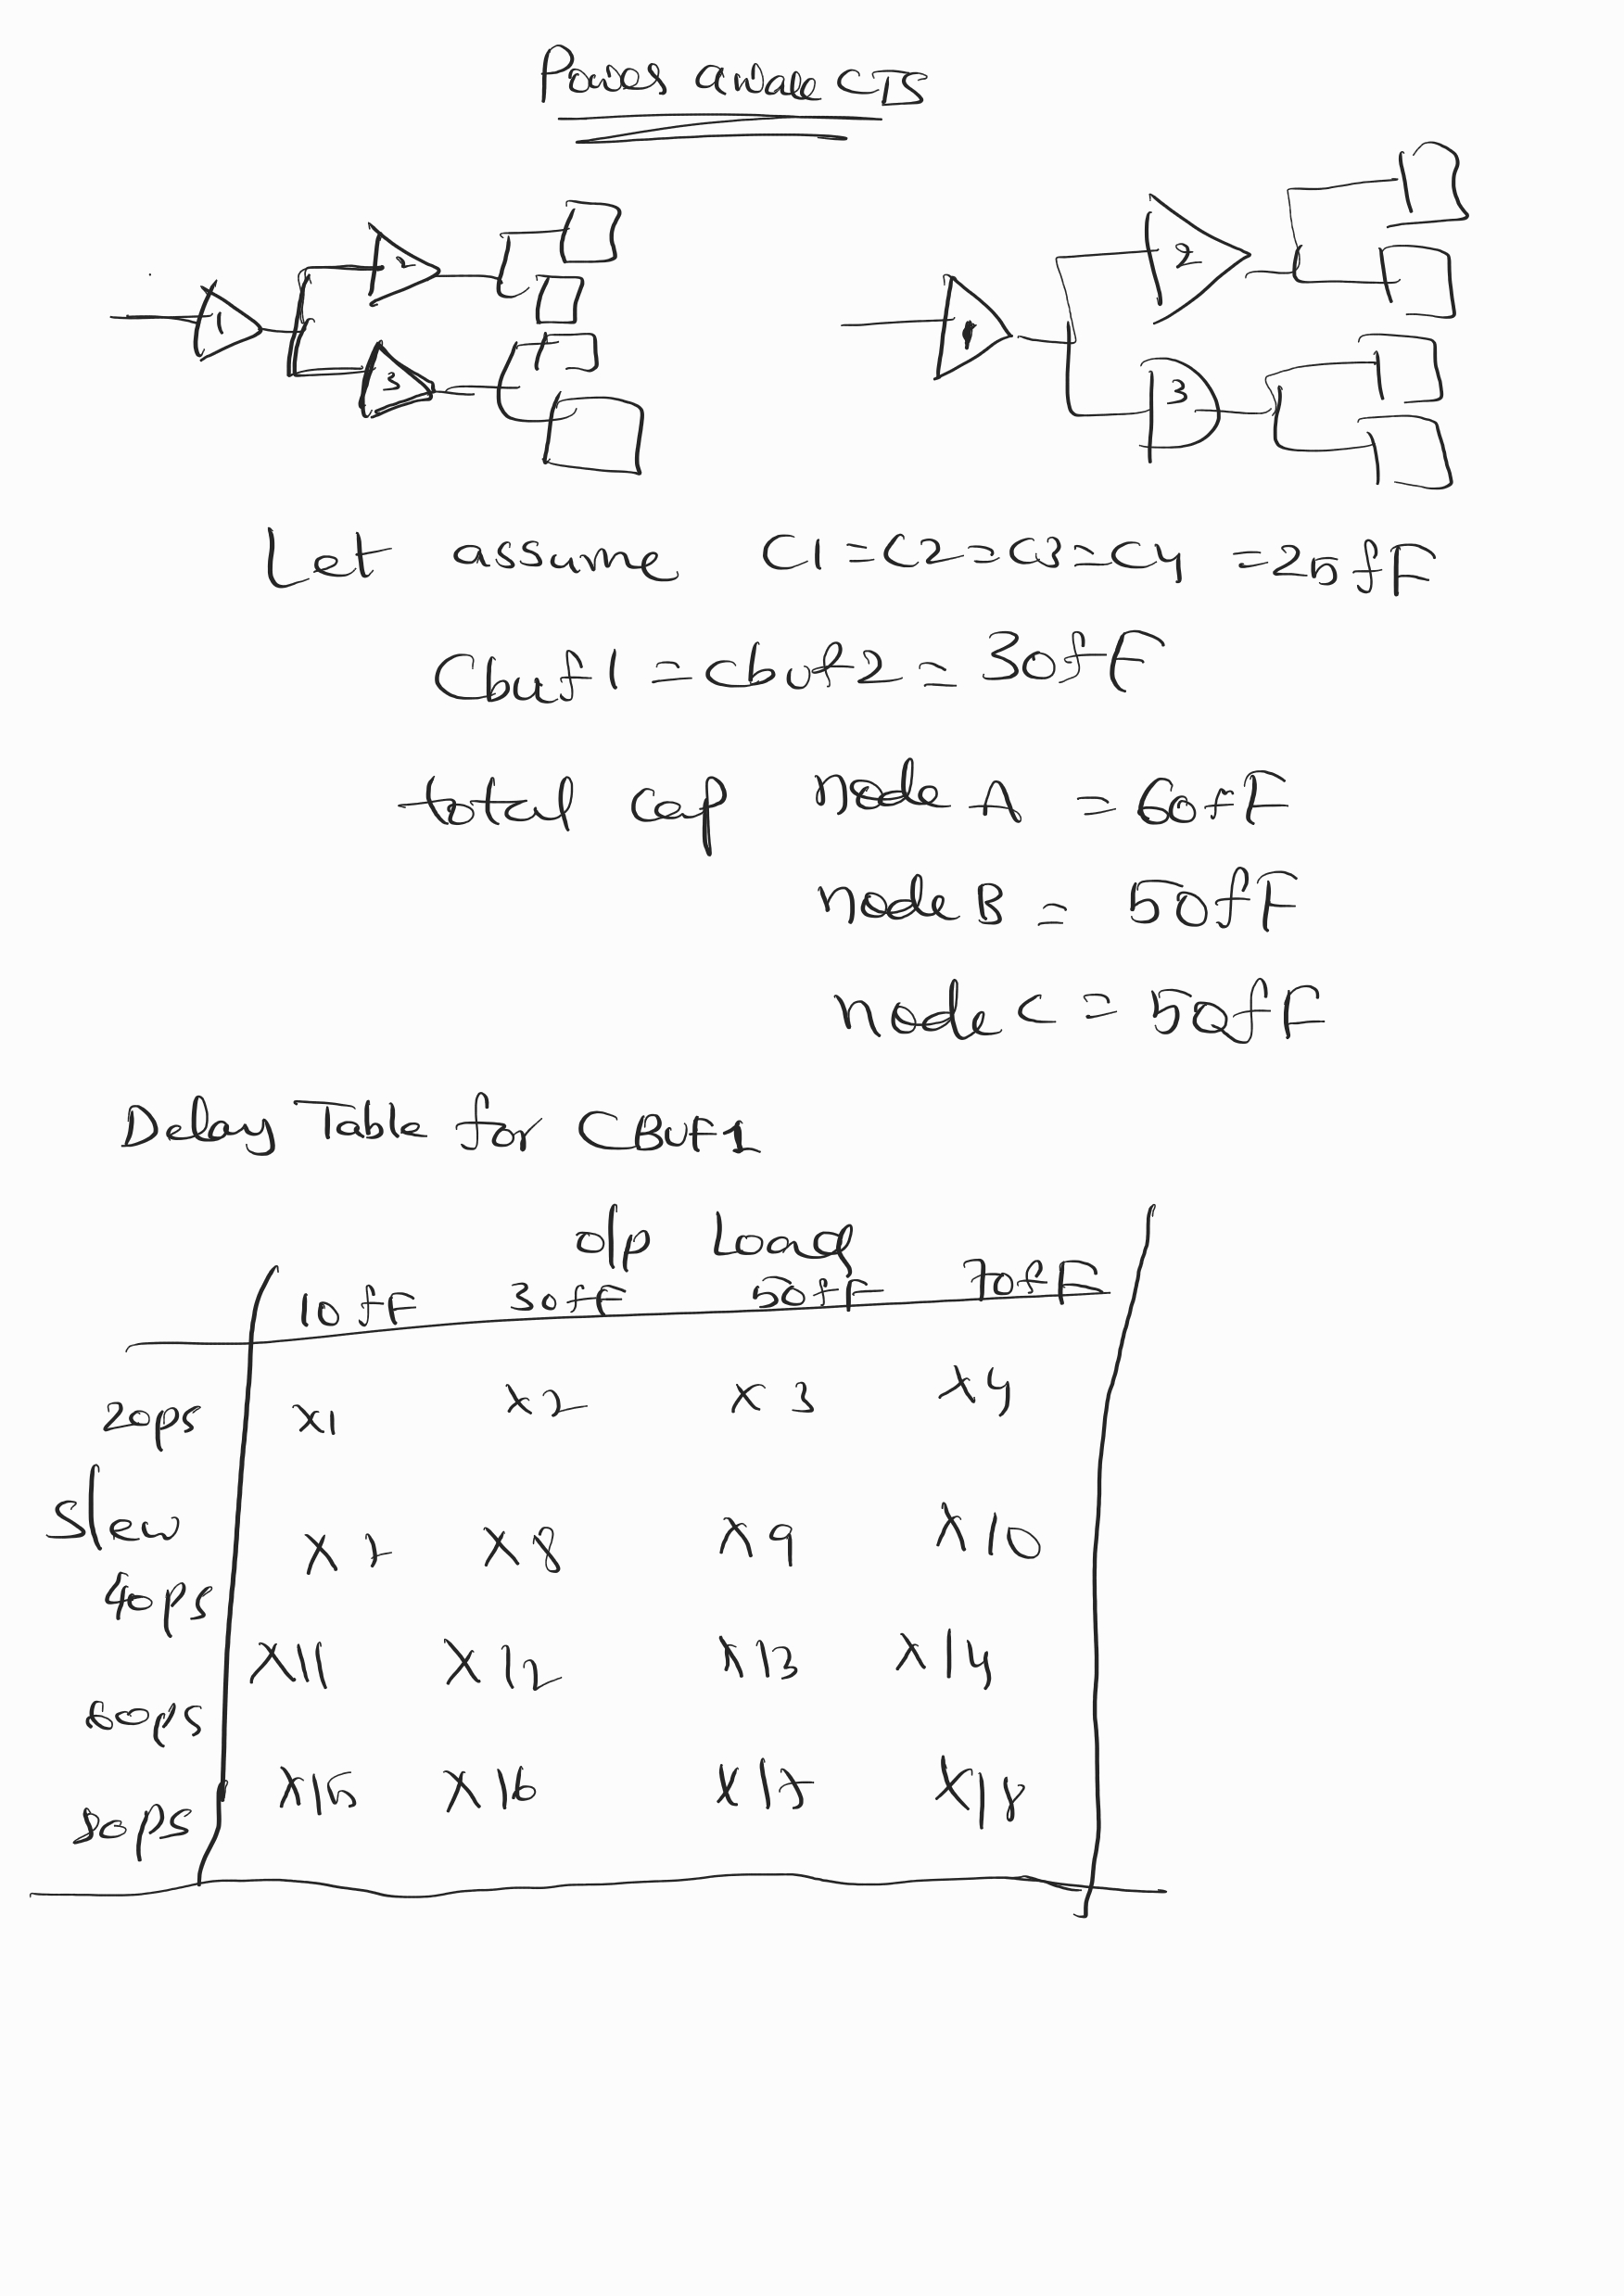 Power aware CTS
1 2 3
1 2 3
Let assume C1=C2=C3=C4 =25fF
Cbuf1 =cbuf2 = 30fF
total cap node A = 60fF
node B = 50fF
node C = 50fF
Delay Table for CBuf1
o/p Load
10fF 30fF 50fF 70fF
20ps x1 x2 x3 x4
Slew
x7 x8 x9 x10
40ps
x11 x12 x13 x14
60ps
x15 x16 x17 x18
80ps